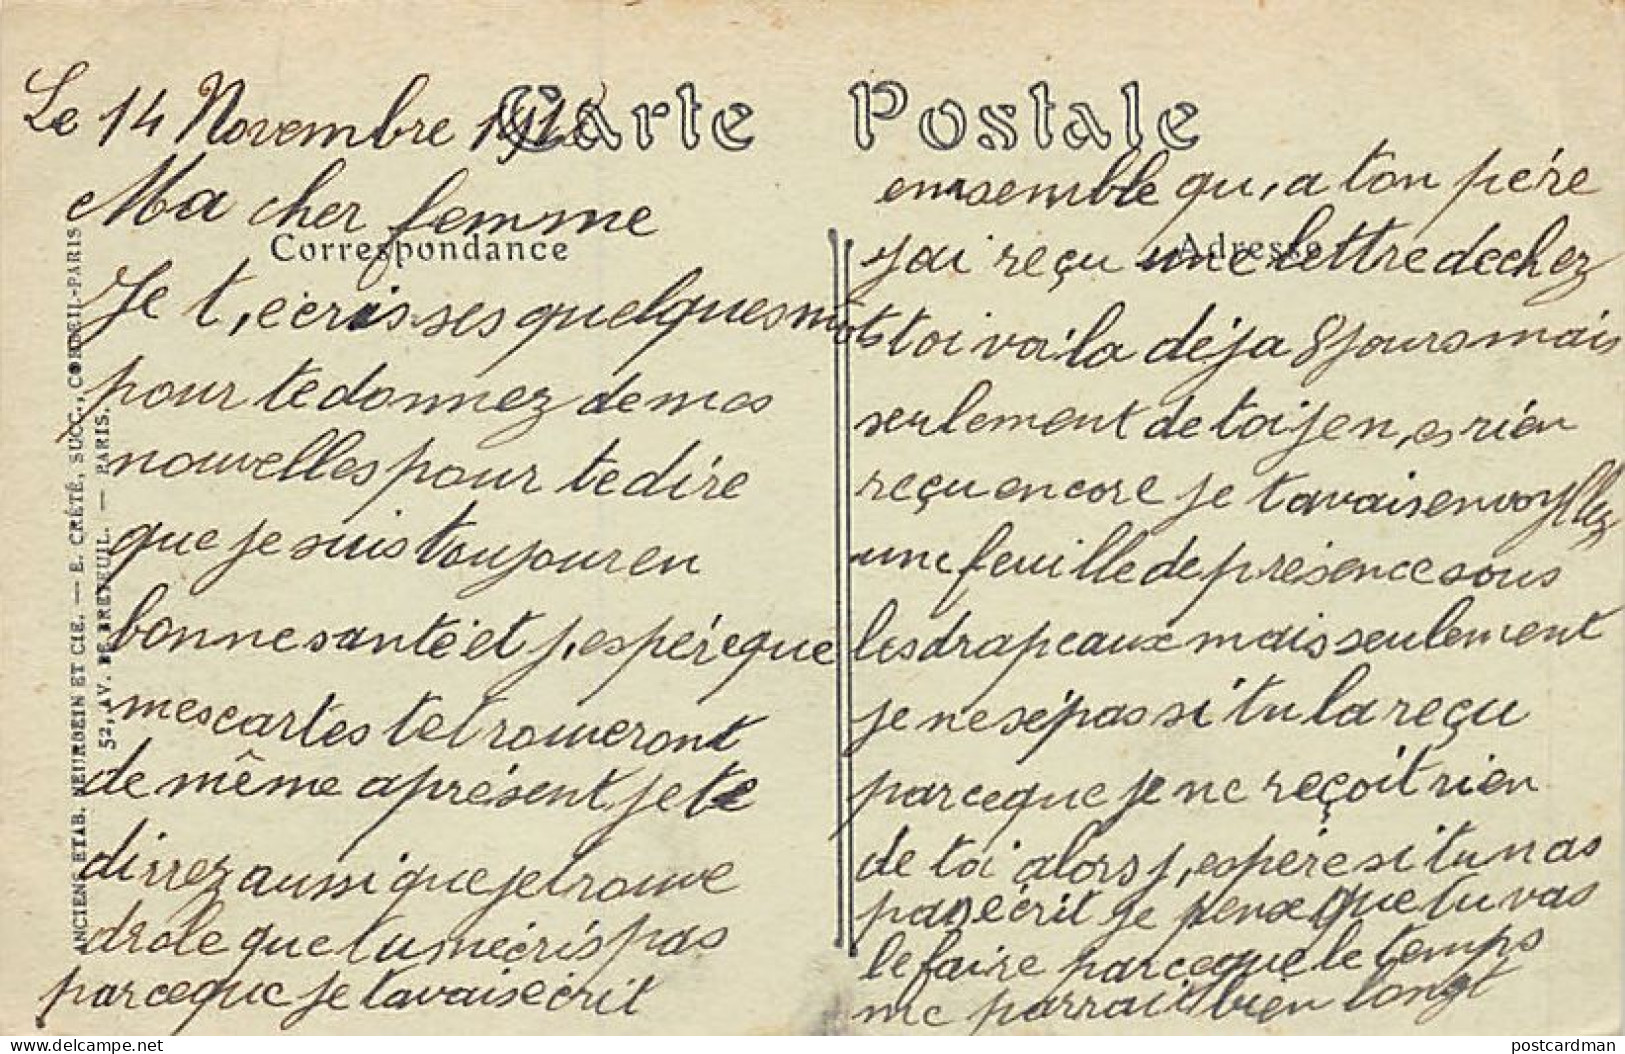 Carte Postale
Correspondance
Adresse
ANCIENS ETAB. NEURDEIN ET CIE. — E. CRÉTÉ, SUCC., CORBEIL-PARIS
52, AV. DE BRETEUIL. — PARIS.
Le 14 Novembre
Ma cher femme
Je t,ecris ses quelques mots
pour te donnez de mes
nouvelles pour te dire
que je suis toujour en
bonne santé et j,espére que
mes cartes te trouveront
de même aprésent je te
dirrez aussi que je trouve
drole que tu mécris pas
parceque je tavais écrit
ensemble qu,a ton pére
j'ai reçu une lettre de chez
toi voila déja 8 jours mais
seulement de toi jen,es rién
reçu encore je tavais envoyllez
une feuille de présence sous
les drapeaux mais seulement
je ne sé pas si tu la reçu
parceque je ne reçoit rien
de toi alors j,espére si tu n as
pas écrit je pense que tu vas
le faire parceque le temps
me parrait bien longt
postcardman
delcampe.net